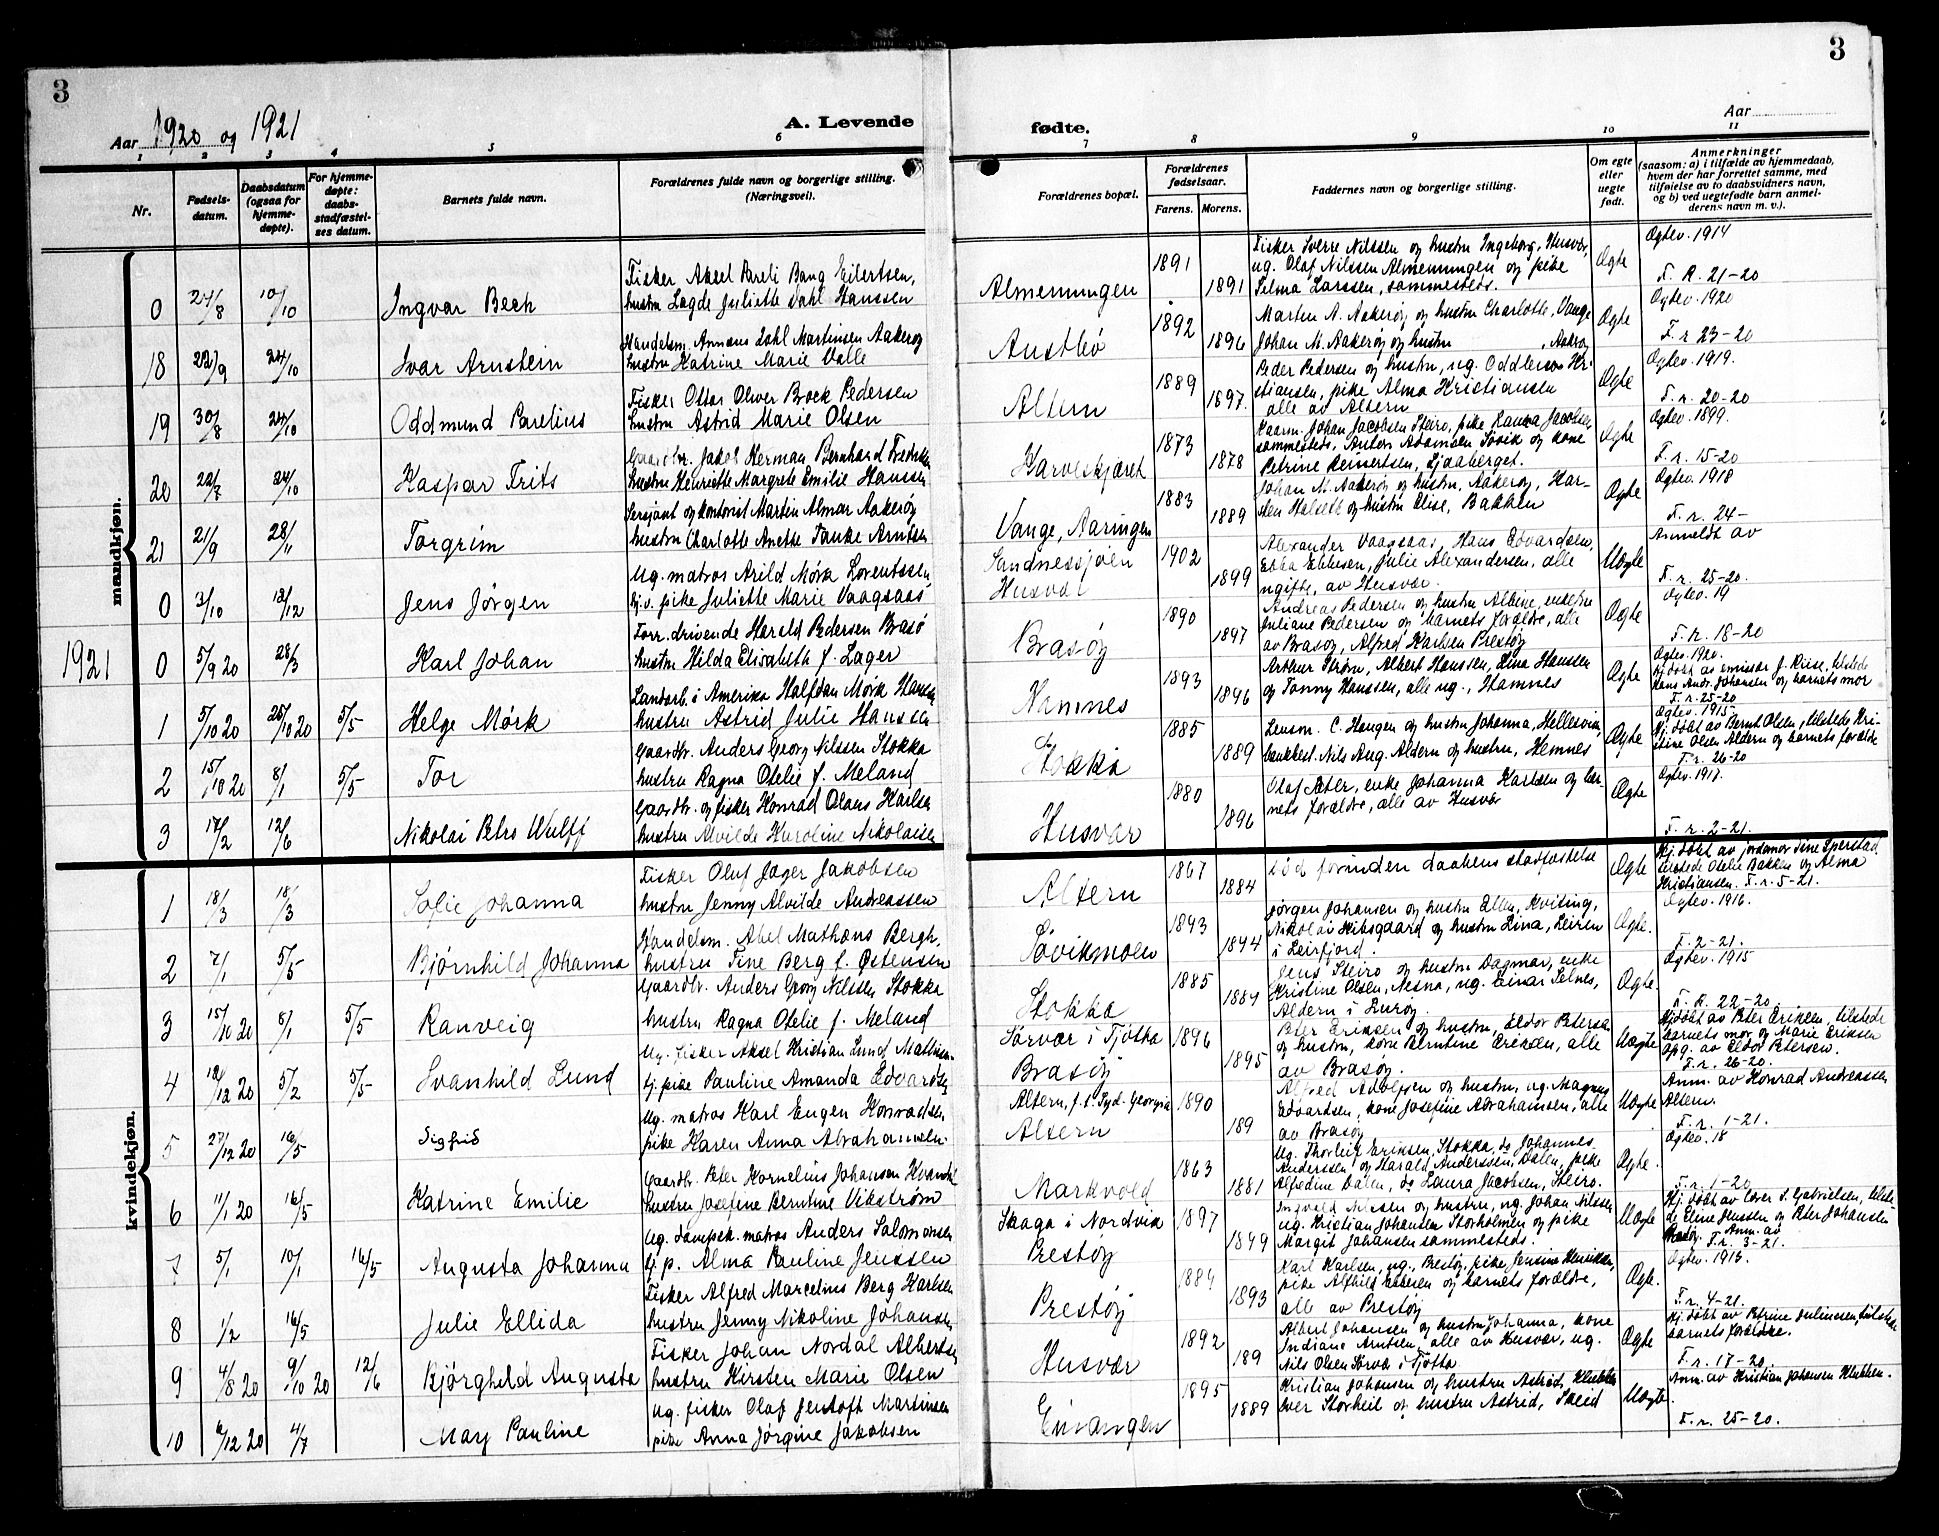 3
3
Aar 1920 og 1921
A. Levende
fødte.
Aar
1 2 3 4 5 6 7 8 9 10 11
Nr.
Fødsels-
datum.
Daabsdatum
(ogsaa for
hjemme-
døpte).
For hjemme-
døpte:
daabs-
stadfæstel-
ses datum.
Barnets fulde navn.
Forældrenes fulde navn og borgerlige stilling.
(Næringsvei).
Forældrenes bopæl.
Forældrenes
fødselsaar.
Farens. Morens.
Faddernes navn og borgerlige stilling.
Om egte
eller
uegte
født.
Anmerkninger
(saasom: a) i tilfælde av hjemmedaab,
hvem der har forrettet samme, med
tilføielse av to daabsvidners navn,
og b) ved uegtefødte barn anmel-
derens navn m. v.).
mandkjøn.
0 24/8 10/10 Ingvar Bech
Fisker Aksel Pareli Bang Eilertsen,
hustru Lagde Juliette Dahl Hanssen
Almenningen 1891 1891
Fisker Sverre Nilssen og hustru Ingeborg, Husvær,
ug. Olaf Nilssen Almenningen og pike
Selma Larssen, sammesteds.
Ægte
Ægtev. 1914
F. R. 21-20
18 22/9 24/10 Ivar Arnstein
Handelsm. Annæus Dahl Martinsen Aakerøy
hustru Katrine Marie Valle
Austbø 1892 1896
Marten A. Aakerøy og hustru Charlotte, Vange
Johan M. Aakerøy og hustru , Aakerøy
Ægte
Ægtev. 1920
F. r 23-20
19 30/8 24/10 Oddmund Parelius
Fisker Ottar Oliver Brock Pedersen
hustru Astrid Marie Olsen
Altern 1889 1897.
Peder Pedersen og hustru, ug. Oddleiv Kri-
stiansen, pike Alma Kristiansen
alle av Altern
Ægte
Ægtev. 1919.
F. r. 20-20
20 22/7 24/10 Kaspar Frits
Gaardbr. Jakob Herman Bernhard Fredriksen
hustru Henriette Margrete Emilie Hanssen
Karveskjæret 1873 1878
Kaarm. Johan Jacobsen Steiro, pike Laura Jacobsen,
sammesteds, Anton Adamsen Søvik og kone
Petrine Reinertsen, Sjaaberget.
Ægte
Ægtev. 1899.
F. r. 15-20
21 21/9 28/11 Torgrim
Sersjant og kontorist Martin Almar Aakerøy
hustru Charlotte Anette Tanke Arntsen
Vange, Aaringen 1883 1889
Johan M. Aakerøy og hustru, Aakerøy, Kar-
sten Halseth og hustru Elise, Bakken
Ægte
Ægtev. 1918
F. r. 24-
0 3/10 12/12 Jens Jørgen
Ug. matros Arild Mørk Lorentssen
tj.v. pike Juliette Marie Vaagsaas
Sandnessjøen
Husvær 1902 1899
Alexander Vaagsaas, Hans Edvardsen,
Ebba Ebbesen, Julie Alexandersen, alle
ugifte, av Husvær.
Uægte
Anmeldt av
F. r. 25-20.
1921
0 5/9 20 28/3 Karl Johan
Forr.drivende Harald Pedersen Brasø
hustru Hilda Elisabeth f. Lager
Brasøy 1890 1897
Andreas Pedersen og hustru Albine, enkefru
Juliane Pedersen og barnets forældre, alle
av Brasøy, Alfred Karlsen Prestøy
Ægte
Ægtev. 19
F. r. 18-20
1 5/10 20 25/10 20 5/5 Helge Mørk
Landarb. i Amerika Halfdan Mørk Hansen
hustru Astrid Julie Hanssen
Hamnes 1893 1896
Arthur Strøm, Albert Hanssen, Lina Hanssen
og Fanny Hanssen, alle ug., Hamnes
Ægte
Ægtev. 1920.
Hj. døbt av emissær J. Riise, tilstede
Hans Andr. Johansen og barnets mor
F. r. 25-20
2 15/10 20 8/1 5/5 Tor
Gaardbr. Anders Georg Nilssen Stokka
hustru Ragna Otelie f. Meland
Stokka 1885 1889
Lensm. C. Haugen og hustru Johanna, Hellesvik,
bankbest. Nils Aug. Aldern og hustru, Hemnes
Ægte
Ægtev. 1915
Hj. døbt av Bernt Olsen, tilstede Kri-
stine Olsen Aldern og barnets forældre
F. r. 26-20
3 17/2 12/6 Nikolai Petrs Wulff
Gaardbr. og fisker Konrad Olaus Karlsen
hustru Alvilde Karoline Nikolaisen
Husvær 1880 1896
Olaf Sæter, enke Johanna Karlsen og bar-
nets forældre, alle av Husvær
Ægte
Ægtev. 1917.
F. r. 2-21.
kvindekjøn.
1 18/3 18/3 Sofie Johanna
Fisker Oluf Jager Jakobsen
hustru Jenny Alvilde Andreassen
Altern 1867 1884
død forinden daabens stadfæstelse
Ægte
Hj. døbt av jordmor Tine Sperstad
tilstede Otelie Bakken og Alma
Kristiansen. F. r. 5-21.
2 7/1 5/5 Bjørnhild Johanna
Handelsm. Abel Mathæus Bergh,
hustru Tine Berg f. Østensen
Søvikmoen 1893 1894
Jørgen Johansen og hustru Ellen, Kviting,
Nikolai Hibsgaard og hustru Lina, Leiren
i Leirfjord.
Ægte.
Ægtev. 1916.
F. 2-21.
3 15/10 20 8/1 5/5 Ranveig
Gaardbr. Anders Georg Nilssen Stokka
hustru Ragna Otelie f. Meland
Stokka 1885 1889
Jens Steiro og hustru Dagmar, enke
Kristine Olsen, Nesna, ug. Einar Selnes,
Aldern i Lurøy.
Ægte.
Ægtev. 1915
F. R. 22-20.
4 12/12 20 5/2 5/5 Svanhild Lund
Ug. fisker Aksel Kristian Lund Mathisen
tj. pike Pauline Amanda Edvardsen
Sørvær i Tjøtta
Brasøy 1896 1895
Peter Eriksen og hustru, Eldor Petersen
og hustru, kone Berntine Eriksen, alle
av Brasøy.
Uægte
Hj.døbt av Peter Eriksen, tilstede
barnets mor og Marie Eriksen
Opg. av Eldor Petersen.
F. r. 26-20.
5 27/12 20 16/5 Sigfrid
Ug. matros Karl Eugen Konradsen
pike Karen Anna Abrahamsen
Altern, f.t. Syd. Georgia
Altern 1890 189
Alfred Adolfsen og hustru, ug. Magnus
Edvardsen, kone Josefine Abrahamsen, alle
av Brasøy
Uægte
Anm. av Konrad Andreassen
Altern.
F. r. 1-21.
6 11/1 20 16/5 Katrine Emilie
Gaardbr. Peter Kornelius Johansen Kvandal
hustru Josefine Berntine Vikstrøm
Markvold 1863 1881
Ug. Thorleif Eriksen, Stokka, do Johannes
Anderssen og Harald Anderssen, Dalen, pike
Alfedine Dalen, do Laura Jacobsen, Steiro.
Ægte.
Ægtev. 18
F. r. 1-20
7 5/1 10/1 16/5 Augusta Johanna
Ug. dampsk. matros Anders Salomonsen
tj. p. Alma Pauline Jenssen
Skaga i Nordvik
Prestøy 1897 1899
Ingvald Nilssen og hustru, ug. Johan Nilssen
ug. Kristian Johansen Storholmen og pike
Margit Johansen sammesteds.
Uægte
Hj. døbt av lærer S. Gabrielsen, tilste-
de Eline Jenssen og Peter Johansen
Prestøy. Anm. av
F. r. 3-21.
8 1/2 16/5 Julie Ellida
Fisker Alfred Marcelius Berg Karlsen
hustru Jenny Nikoline Johansen
Prestøy 1884 1893
Karl Karlsen, ug., Prestøy, pike Jensine Henriksen,
pike Alfhild Ebbesen og barnets forældre,
alle av Prestøy
Ægte.
Ægtev. 1915.
F. r. 4-21.
9 4/8 20 9/10 20 12/6 Bjørghild Augusta
Fisker Johan Nordal Albertsen
hustru Kirsten Marie Olsen
Husvær 1892 189
Albert Johansen og hustru Johanna, kone
Indiane Arntsen, alle av Husvær, ug.
Nils Olsen Sørvær i Tjøtta
Ægte
Hj. døbt av Petrine Juliussen, tilstede
barnets forældre.
F. r. 17-20.
10 6/12 20 4/7 Mary Pauline
Ug. fisker Olaf Jentoft Martinsen
pike Anna Jørgine Jakobsen
Einangen 1895 1889
Kristian Johansen og hustru Astrid, Klubben
Iver Storheil og hustru Astrid, Skeid
Uægte.
Anm. av Kristian Johansen Klubben.
F. r. 25-20.